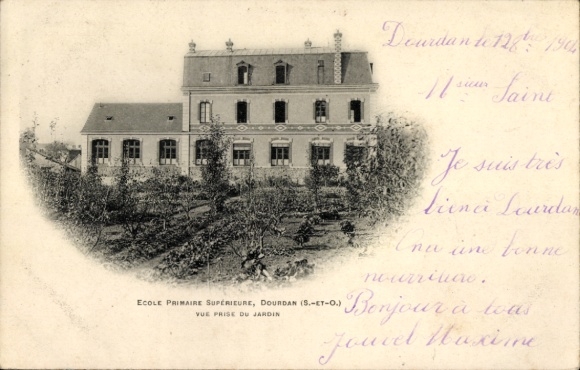 Dourdan le 12 8bre 1904
Msieur Saine
Je suis très
bien à Dourdan
On a une bonne
nourriture.
Bonjour à tous
Jouvet Maxime
ECOLE PRIMAIRE SUPÉRIEURE, DOURDAN (S.-ET-O.)
VUE PRISE DU JARDIN